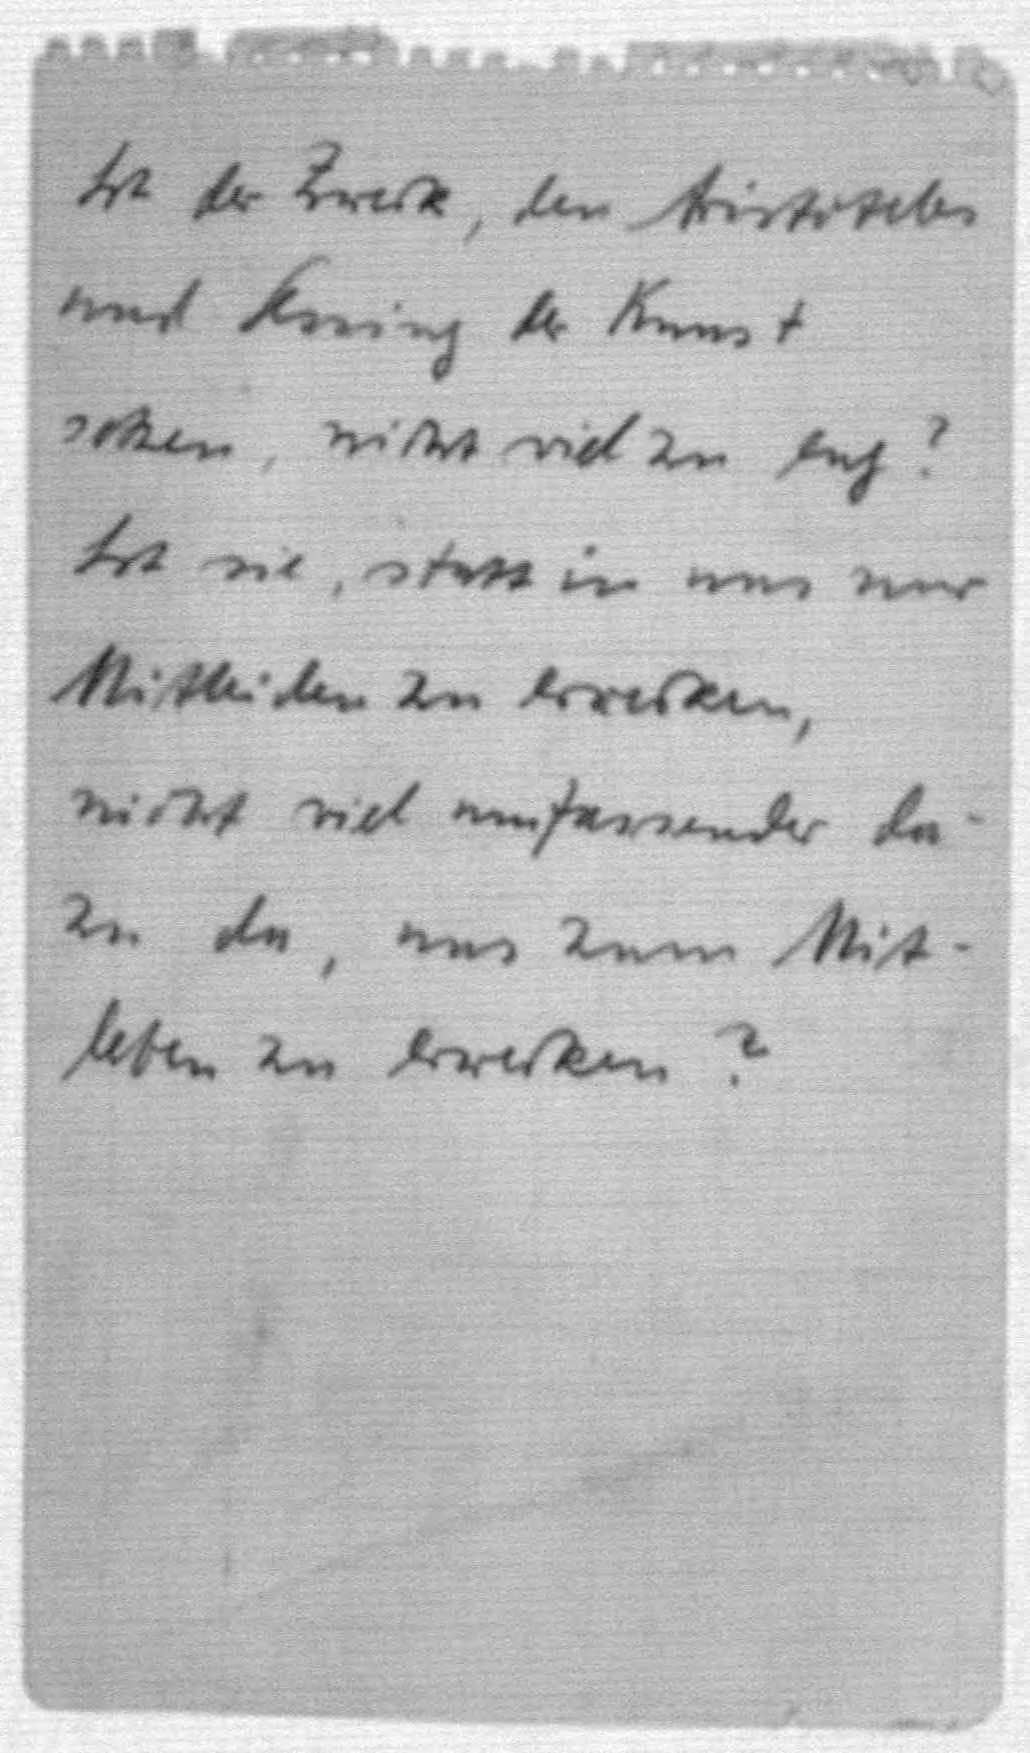 Ist der Zweck, den Aristoteles
und Lessing der Kunst
setzen, nicht viel zu eng?
Ist sie, statt in uns nur
Mitleiden zu erwecken,
nicht viel umfassender da-
zu da, uns zum Mit-
leben zu erwecken?